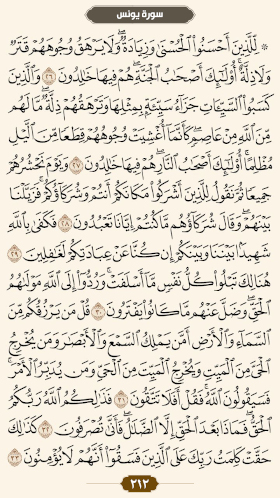 سورة يونس
۞ لِّلَّذِينَ أَحْسَنُوا۟ ٱلْحُسْنَىٰ وَزِيَادَةٌ ۖ وَلَا يَرْهَقُ وُجُوهَهُمْ قَتَرٌ
وَلَا ذِلَّةٌ ۚ أُو۟لَـٰٓئِكَ أَصْحَـٰبُ ٱلْجَنَّةِ ۖ هُمْ فِيهَا خَـٰلِدُونَ ٢٦ وَٱلَّذِينَ
كَسَبُوا۟ ٱلسَّيِّـَٔاتِ جَزَآءُ سَيِّئَةٍۭ بِمِثْلِهَا وَتَرْهَقُهُمْ ذِلَّةٌ ۖ مَّا لَهُم
مِّنَ ٱللَّهِ مِنْ عَاصِمٍ ۖ كَأَنَّمَآ أُغْشِيَتْ وُجُوهُهُمْ قِطَعًا مِّنَ ٱلَّيْلِ
مُظْلِمًا ۚ أُو۟لَـٰٓئِكَ أَصْحَـٰبُ ٱلنَّارِ ۖ هُمْ فِيهَا خَـٰلِدُونَ ٢٧ وَيَوْمَ نَحْشُرُهُمْ
جَمِيعًا ثُمَّ نَقُولُ لِلَّذِينَ أَشْرَكُوا۟ مَكَانَكُمْ أَنتُمْ وَشُرَكَآؤُكُمْ ۚ فَزَيَّلْنَا
بَيْنَهُمْ ۖ وَقَالَ شُرَكَآؤُهُم مَّا كُنتُمْ إِيَّانَا تَعْبُدُونَ ٢٨ فَكَفَىٰ بِٱللَّهِ
شَهِيدًۢا بَيْنَنَا وَبَيْنَكُمْ إِن كُنَّا عَنْ عِبَادَتِكُمْ لَغَـٰفِلِينَ ٢٩
هُنَالِكَ تَبْلُوا۟ كُلُّ نَفْسٍ مَّآ أَسْلَفَتْ ۚ وَرُدُّوٓا۟ إِلَى ٱللَّهِ مَوْلَىٰهُمُ
ٱلْحَقِّ ۖ وَضَلَّ عَنْهُم مَّا كَانُوا۟ يَفْتَرُونَ ٣٠ قُلْ مَن يَرْزُقُكُم مِّنَ
ٱلسَّمَآءِ وَٱلْأَرْضِ أَمَّن يَمْلِكُ ٱلسَّمْعَ وَٱلْأَبْصَـٰرَ وَمَن يُخْرِجُ
ٱلْحَىَّ مِنَ ٱلْمَيِّتِ وَيُخْرِجُ ٱلْمَيِّتَ مِنَ ٱلْحَىِّ وَمَن يُدَبِّرُ ٱلْأَمْرَ ۚ
فَسَيَقُولُونَ ٱللَّهُ ۚ فَقُلْ أَفَلَا تَتَّقُونَ ٣١ فَذَٰلِكُمُ ٱللَّهُ رَبُّكُمُ
ٱلْحَقُّ ۖ فَمَاذَا بَعْدَ ٱلْحَقِّ إِلَّا ٱلضَّلَـٰلُ ۖ فَأَنَّىٰ تُصْرَفُونَ ٣٢ كَذَٰلِكَ
حَقَّتْ كَلِمَتُ رَبِّكَ عَلَى ٱلَّذِينَ فَسَقُوٓا۟ أَنَّهُمْ لَا يُؤْمِنُونَ ٣٣
٢١٢